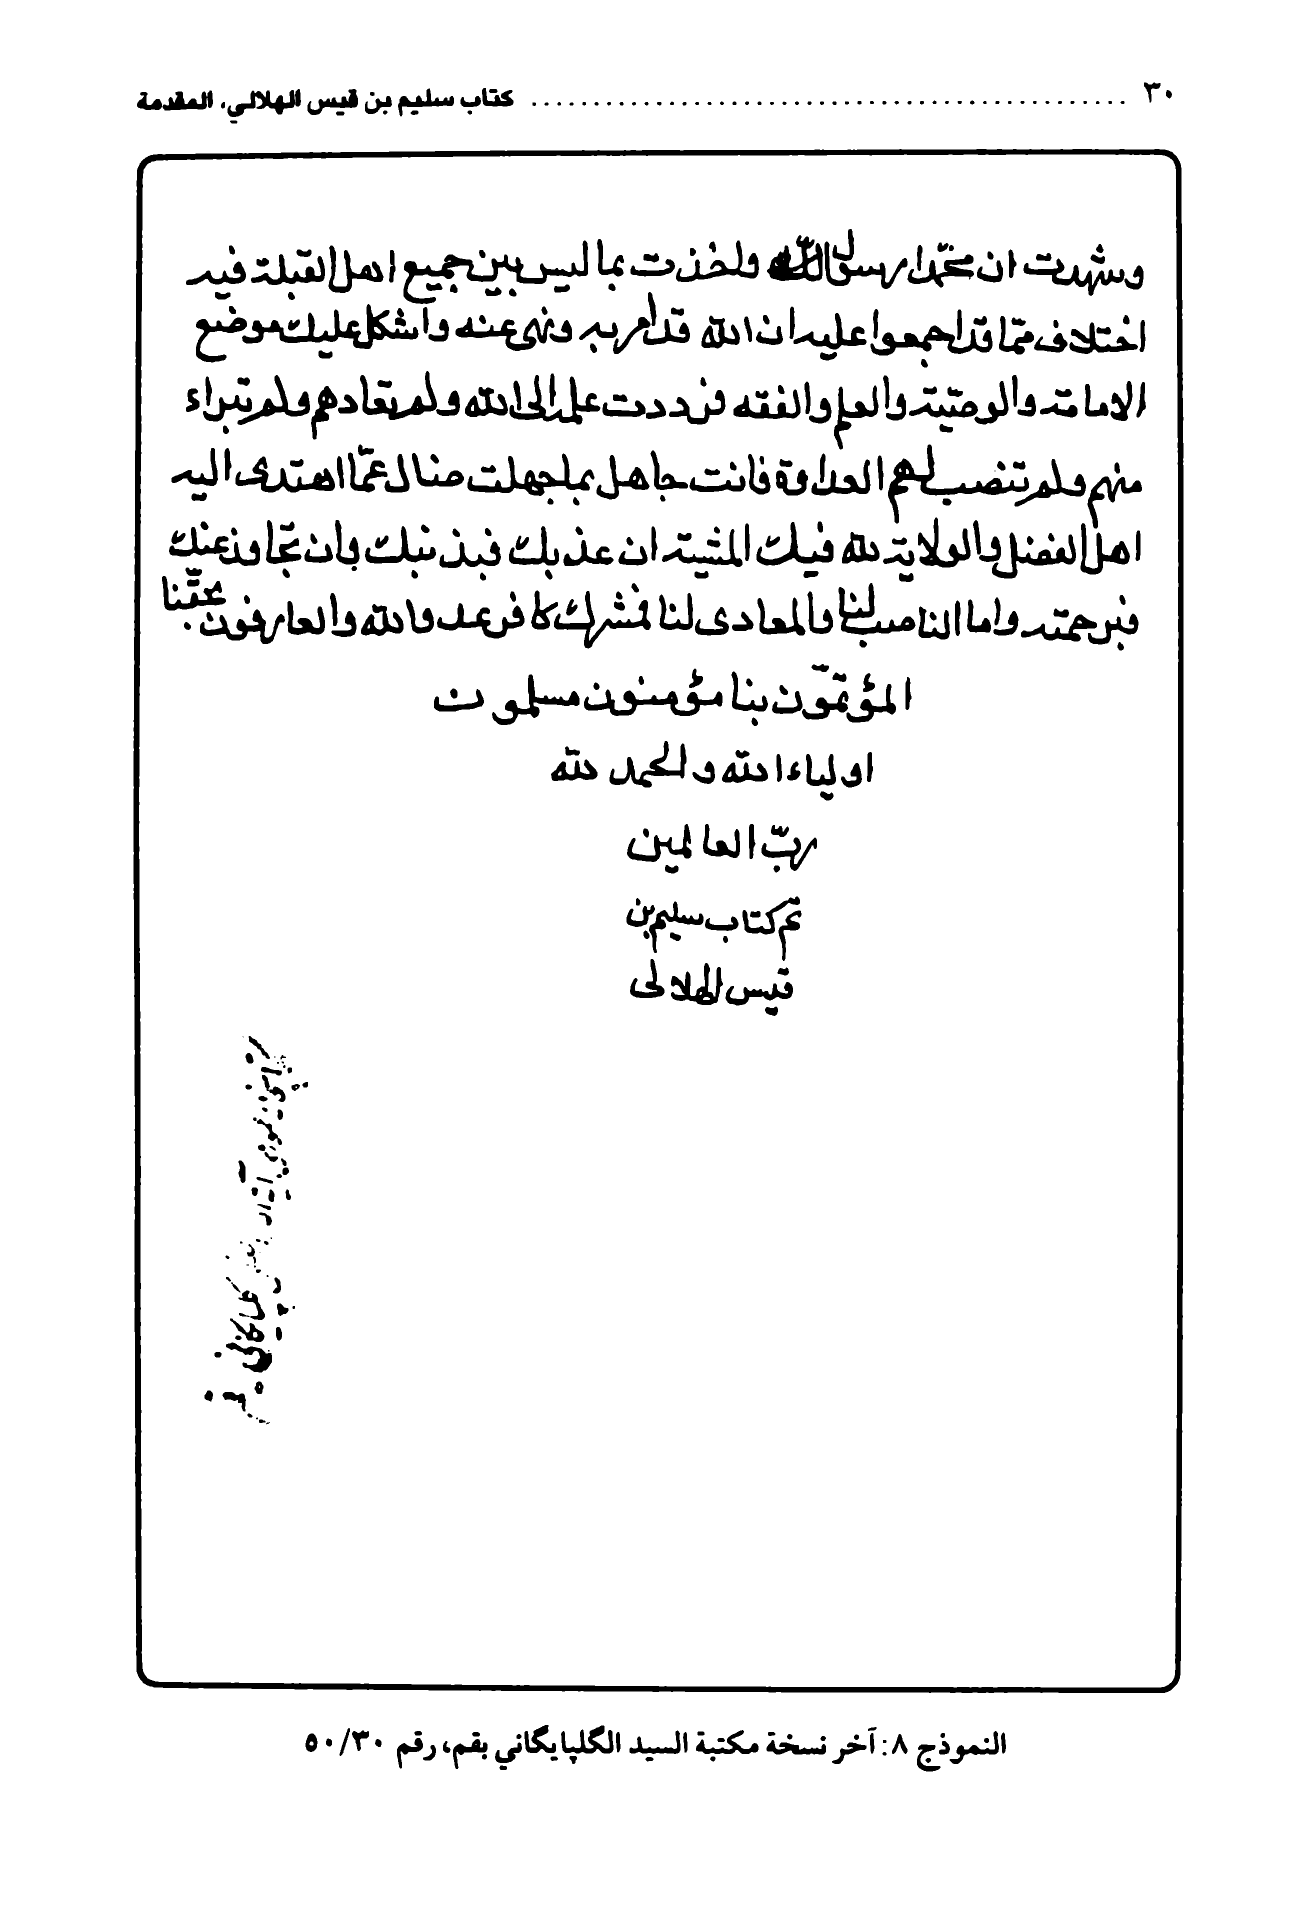 ٣٠ ........................................ كتاب سليم بن قيس الهلالي، المقدمة
وشهدت ان محمّدا رسول اللّه واخذت بما ليس بين جميع اهل القبلة فيه
اختلاف ممّا قد اجمعوا عليه ان الله قد أمر به ونهى عنه واشكل عليك موضع
الامامة والوصيّة والعلم والفقه فرددت علمه الى الله ولم تعادهم ولم تبراء
منهم ولم تنصب لهم العداوة فانت جاهل بما جهلت ضال عمّا اهتدى اليه
اهل الفضل والولاية لله فيك المشية ان عذبك فبذنبك وان تجاوز عنك
فبرحمته واما الناصب لنا والمعادى لنا فمشرك كافر عدو الله والعارفون بحقّنا
المؤتمّون بنا مؤمنون مسلمون
اولياء الله والحمد لله
ربّ العالمين
تم كتاب سليم بن
قيس الهلالى
گلپایگانی
النموذج ٨: آخر نسخة مكتبة السيد الگلپايگاني بقم، رقم ٥٠/٣٠